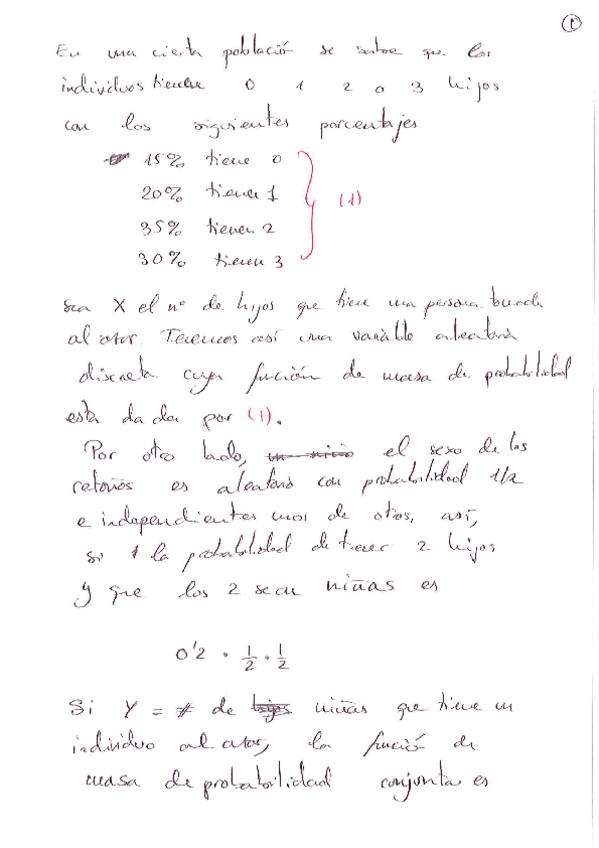 1
En una cierta població se sabe que los
individuos tienen 0 1 2 o 3 hijos
con los siguientes porcentajes
15% tiene 0
20% tienen 1
35% tienen 2
(1)
30% tienen 3
Sea X el nº de hijos que tiene una persona
al atar. Tenemos así una variable aleatoria
discreta cuya función de masa de probabilidad
está dada por (1).
Por otro lado, el sexo de los
retoños es aleatorio con probabilidad 1/2
e independientes unos de otros, así,
si la probabilidad de tener 2 hijos
y que los 2 sean niñas es
0'2 · 1/2 · 1/2
Si Y = # de niñas que tiene un
individuo al atar, la funció de
masa de probabilidad conjunta es